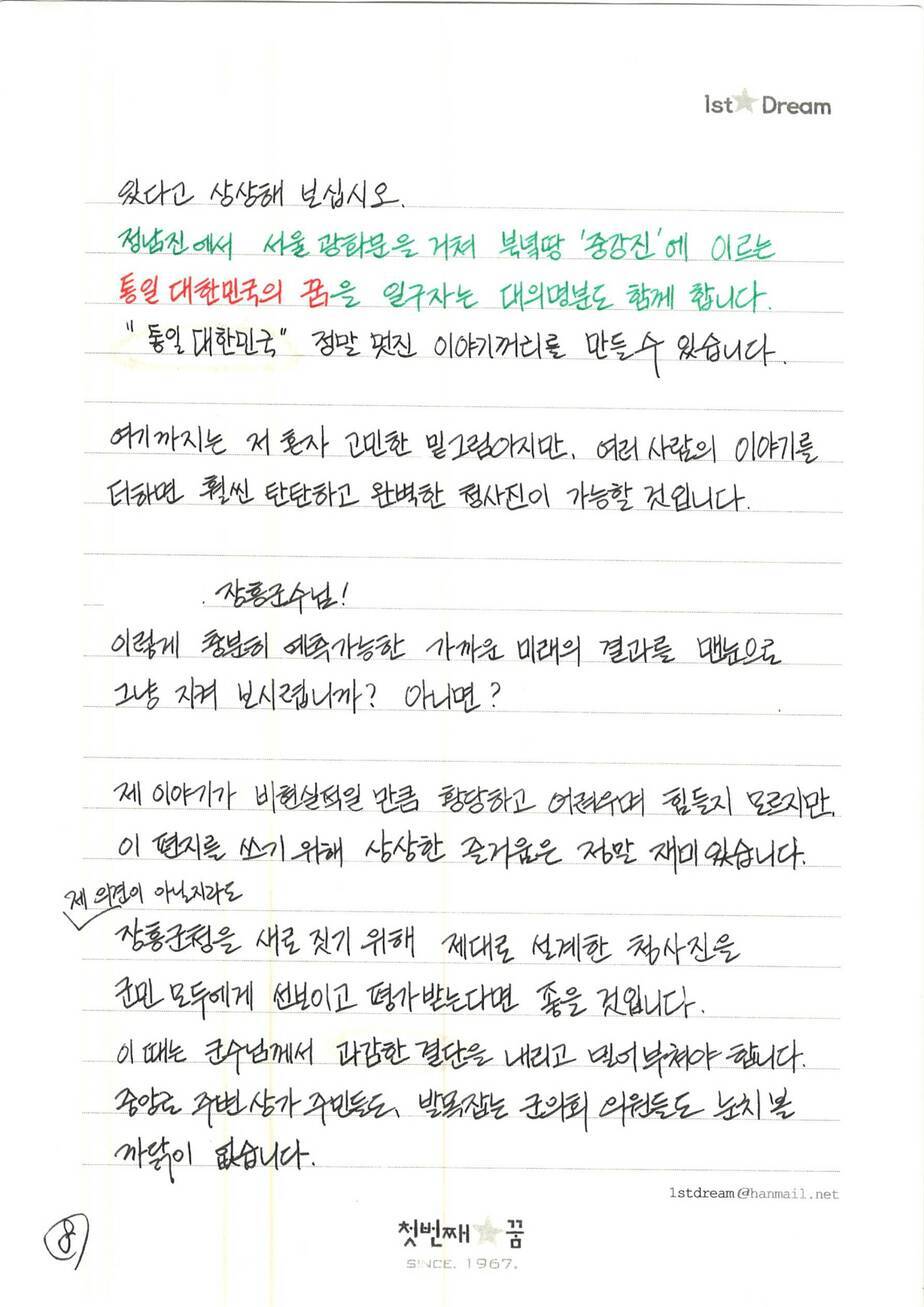 1st Dream
있다고 상상해 보십시오.
정남진에서 서울 광화문을 거쳐 북녘땅 '중강진'에 이르는
통일 대한민국의 꿈을 일구자는 대의명분도 함께 합니다.
"통일 대한민국" 정말 멋진 이야기꺼리를 만들 수 있습니다.
여기까지는 저 혼자 고민한 밑그림이지만, 여러 사람의 이야기를
더하면 훨씬 단단하고 완벽한 청사진이 가능할 것입니다.
장흥군수님!
이렇게 충분히 예측가능한 가까운 미래의 결과를 맨눈으로
그냥 지켜 보시렵니까? 아니면?
제 이야기가 비현실적일 만큼 황당하고 어려우며 힘들지 모르지만,
이 편지를 쓰기 위해 상상한 즐거움은 정말 재미있습니다.
제 의견이 아닐지라도
장흥군청을 새로 짓기 위해 제대로 설계한 청사진을
군민 모두에게 선보이고 평가받는다면 좋을 것입니다.
이 때는 군수님께서 과감한 결단을 내리고 밀어부쳐야 합니다.
중앙로 주변상가 주민들도, 발목잡는 군의회 의원들도 눈치 볼
까닭이 없습니다.
1stdream@hanmail.net
8
첫번째 꿈
SINCE. 1967.